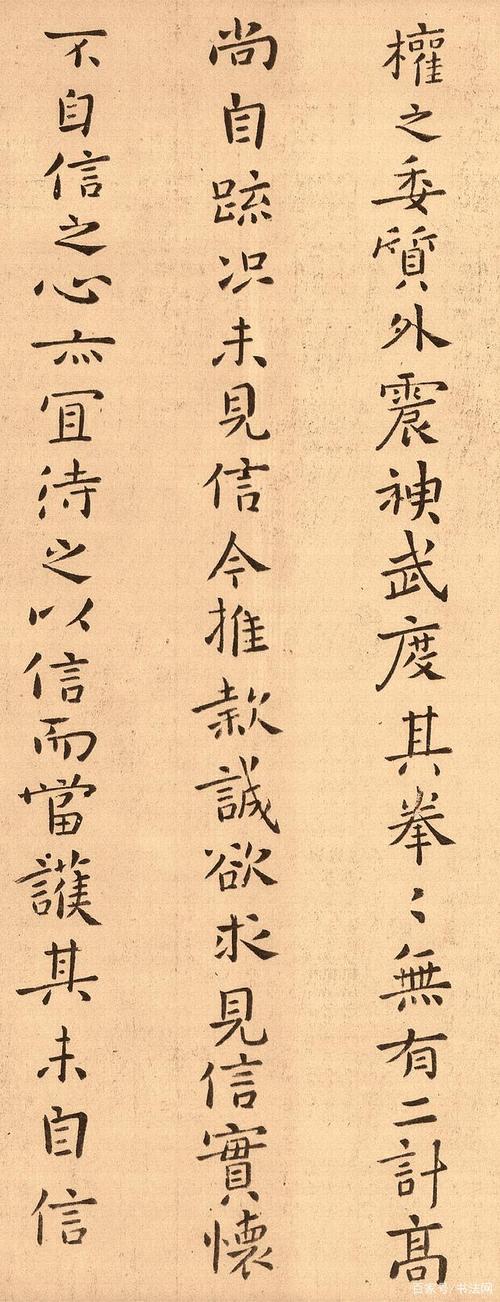 權之委質外震神武度其拳〻無有二計高
尚自疏况未見信今推款誠欲求見信實懷
不自信之心亦宜待之以信而當護其未自信
百家号/书法网